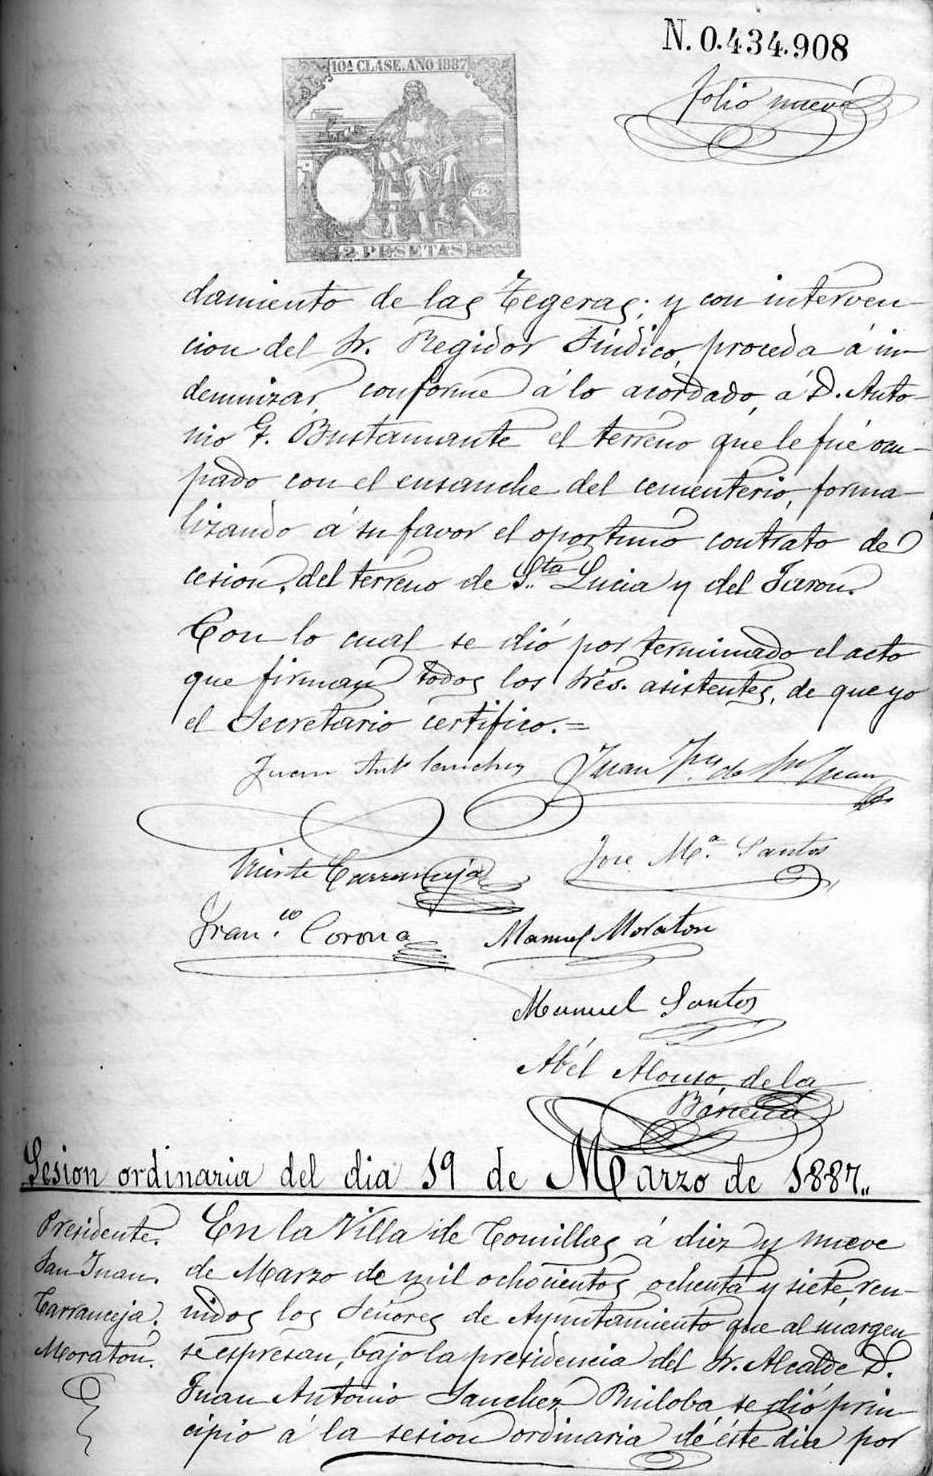 N. 0.434.908
folio nueve
10ª CLASE. AÑO 1887
2 PESETAS
damiento de las Tegeras; y con interven-
cion del Sr. Regidor Sindico, proceda á in-
demnizar, conforme á lo acordado, á D. Anto-
nio G. Bustamante el terreno que le fué ocu-
pado con el ensanche del cementerio, forma-
lizando á su favor el oportuno contrato de
cesion, del terreno de Sta. Lucia y del Jaron.
Con lo cual se dió por terminado el acto
que firman todos los Sres. asistentes, de que yo
el Secretario certifico.=
Juan Anto Sanchez Juan de San Juan
Vicente Carranceja José Mª. Santos
Franco. Corona Manuel Moraton
Manuel Santos
Abél Alonso de la
Bárcena
Sesion ordinaria del dia 19 de Marzo de 1887.,
Presidente.
San Juan.
Carranceja.
Moraton.
En la Villa de Comillas á diez y nueve
de Marzo de mil ochocientos ochenta y siete, reu-
nidos los Señores de Ayuntamiento que al margen
se espresan, bajo la presidencia del Sr. Alcalde D.
Juan Antonio Sanchez Builoba se dió prin-
cipio á la sesion ordinaria de éste dia por